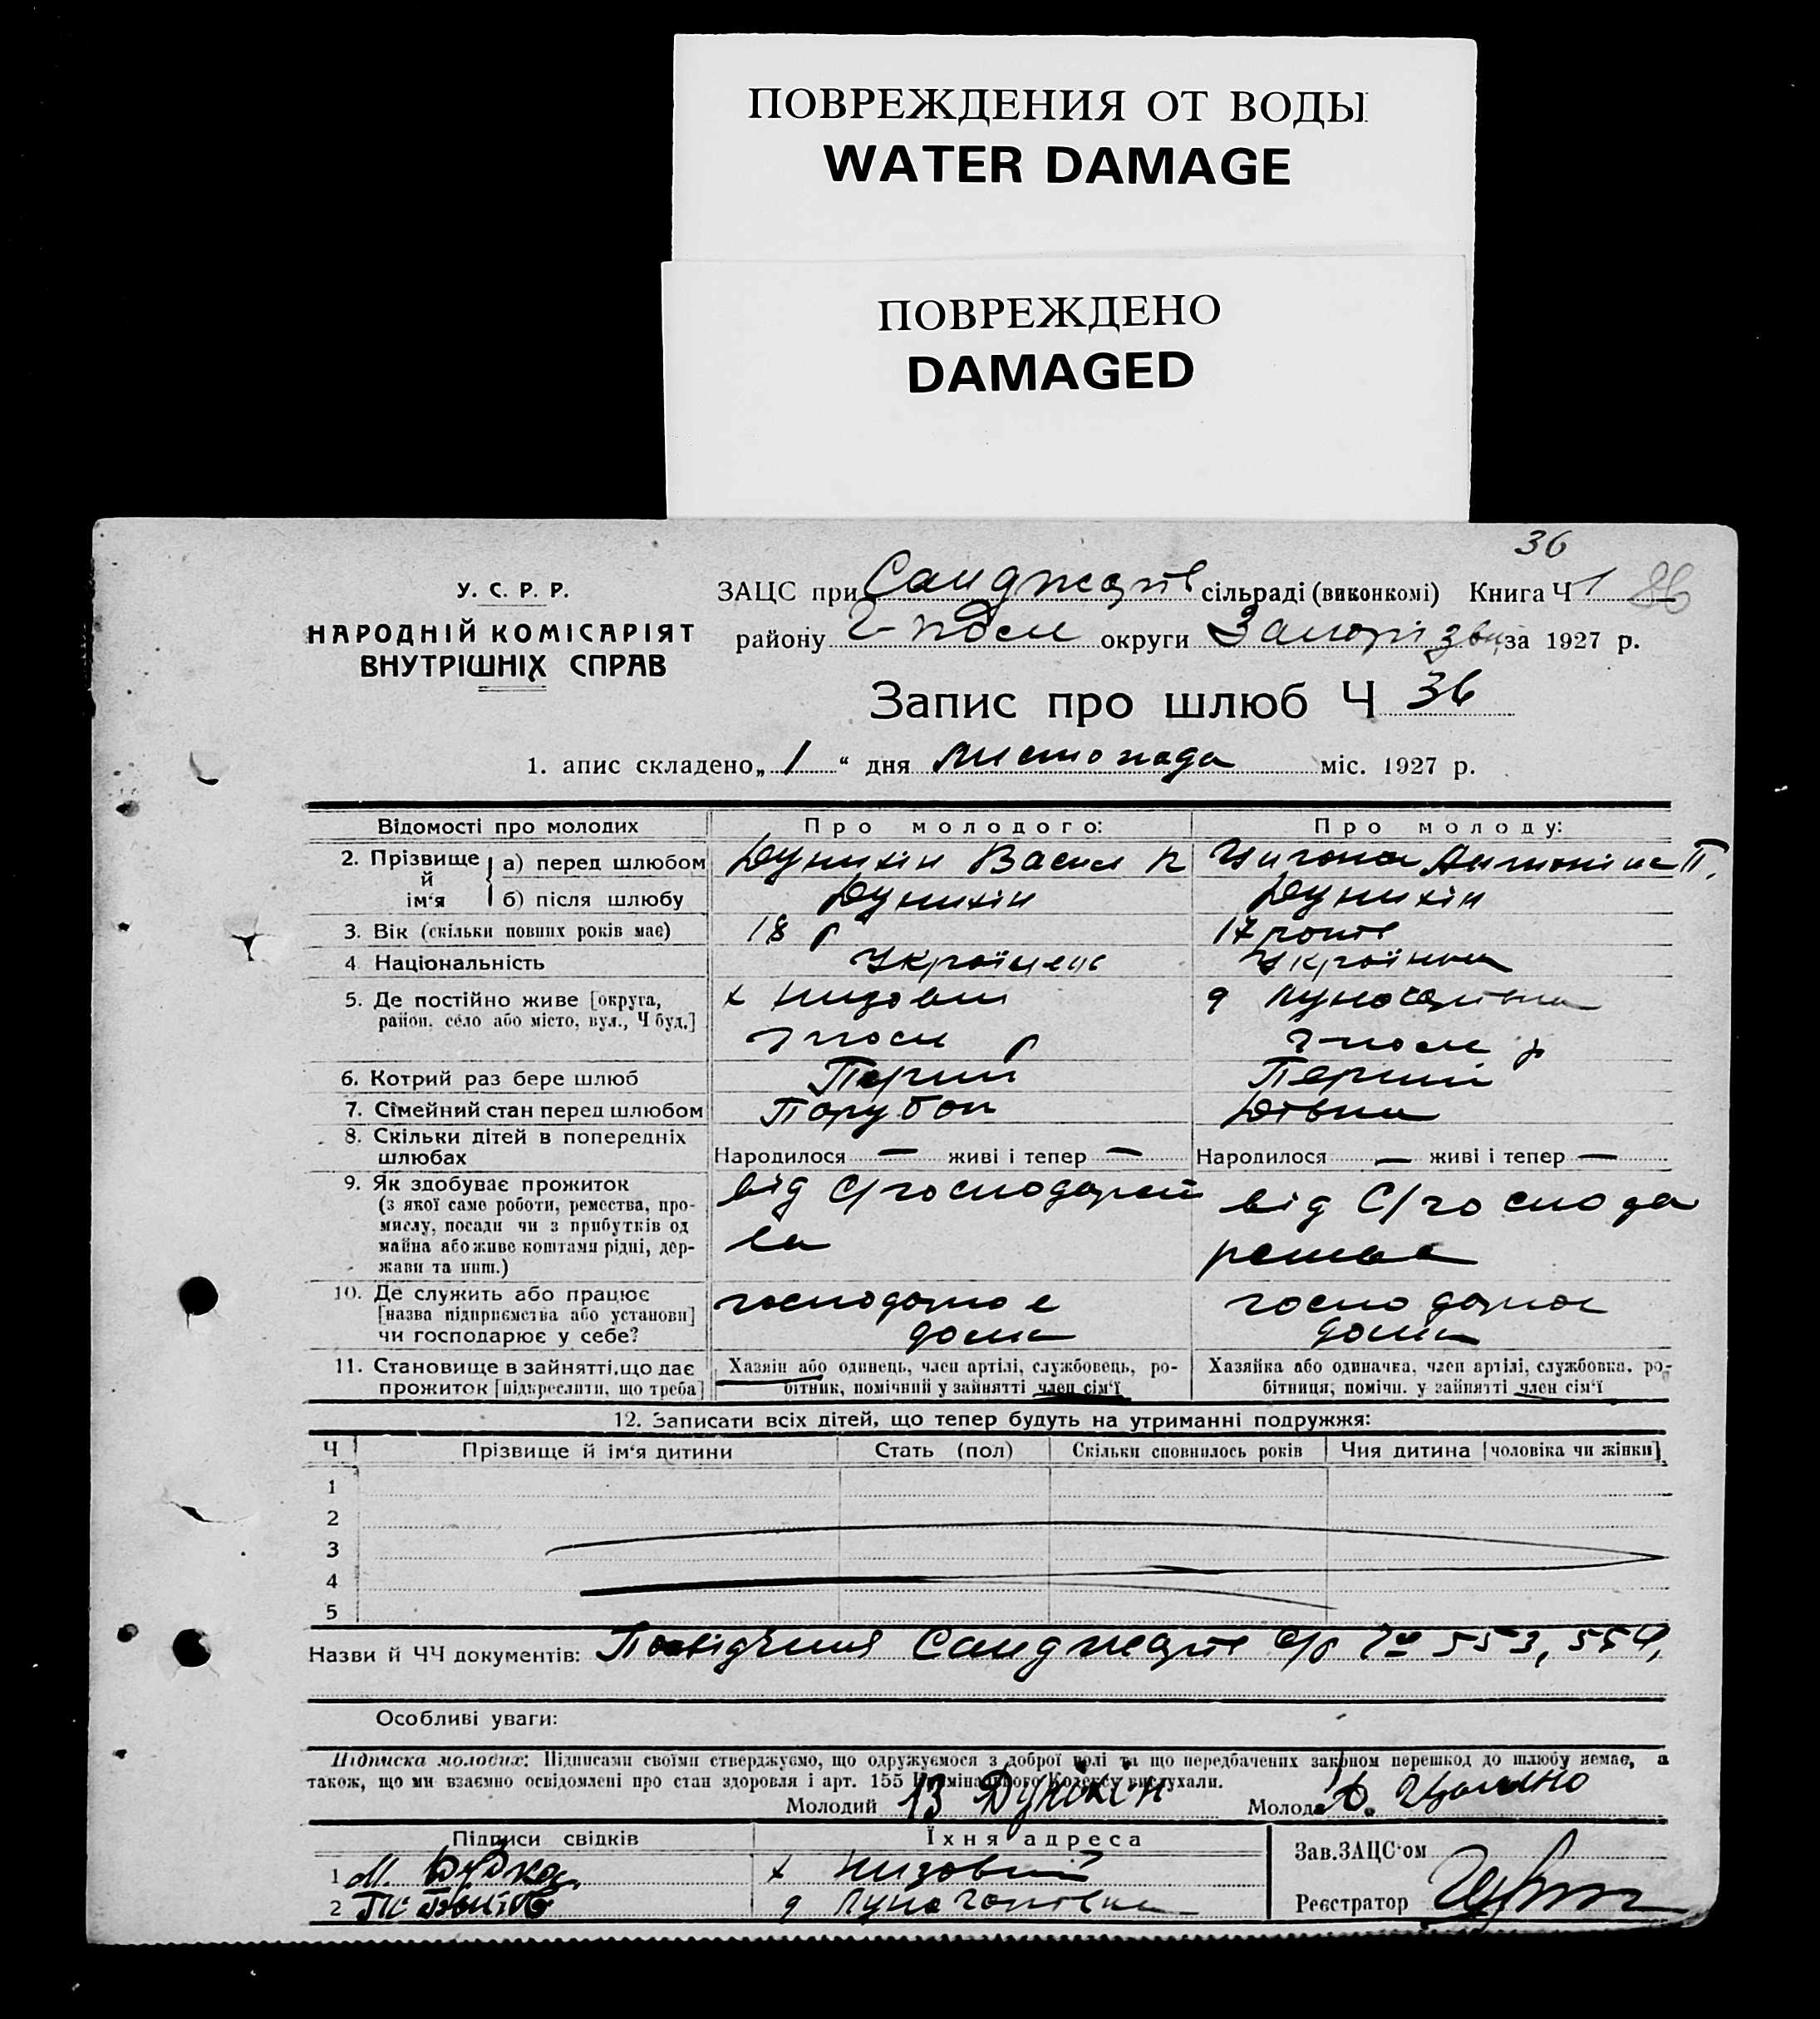 ПОВРЕЖДЕНИЯ ОТ ВОДЫ
WATER DAMAGE
ПОВРЕЖДЕНО
DAMAGED
36
У. С. Р. Р.
НАРОДНІЙ КОМІСАРІЯТ
ВНУТРІШНІХ СПРАВ
ЗАЦС при сільраді (виконкомі) Книга Ч 1 86
району округи за 1927 р.
Запис про шлюб Ч 36
1. апис складено „ 1 “ дня Листопада міс. 1927 р.
Відомості про молодих
Про молодого:
Про молоду:
2. Прізвище й ім‘я
а) перед шлюбом
Дунихін Васил П
Антоніна П.
б) після шлюбу
Дунихін
Дунихін
3. Вік (скільки повних років має)
18 р
17 років
4 Національність
Українець
Українка
5. Де постійно живе [округа,
район, село або місто, вул., Ч буд.]
х Низовий
р
р
6. Котрий раз бере шлюб
Перший
Перший
7. Сімейний стан перед шлюбом
Парубок
Дівка
8. Скільки дітей в попередніх
шлюбах
Народилося — живі і тепер —
Народилося — живі і тепер —
9. Як здобуває прожиток
(з якої саме роботи, ремества, про-
мислу, посади чи з прибутків од
майна або живе коштами рідні, дер-
жави та инш.)
від С/господарст
ва
від С/господа
рства
10. Де служить або працює
[назва підприємства або установи]
чи господарює у себе?
господарює
дома
господарює
дома
11. Становище в зайнятті, що дає
прожиток [підкреслити, що треба]
Хазяін або одинець, член артілі, службовець, ро-
бітник, помічний у зайнятті член сім‘ї
Хазяйка або одиначка, член артілі, службовка, ро-
бітниця, помічн. у зайнятті член сім‘ї
12. Записати всіх дітей, що тепер будуть на утриманні подружжя:
Ч
Прізвище й ім‘я дитини
Стать (пол)
Скільки сповнилось років
Чия дитина [чоловіка чи жінки]
1
2
3
4
5
Назви й ЧЧ документів: с/р 553, 554,
Особливі уваги:
Підписка молодих: Підписами своїми стверджуємо, що одружуємося з доброї волі та що передбачених законом перешкод до шлюбу немає, а
також, що ми взаємно освідомлені про стан здоровля і арт. 155 Кримінального Кодексу вислухали.
Молодий В Дунікін
Молода
Підписи свідків
Їхня адреса
Зав. ЗАЦС‘ом
1 М.
х Низовий
2
Реєстратор